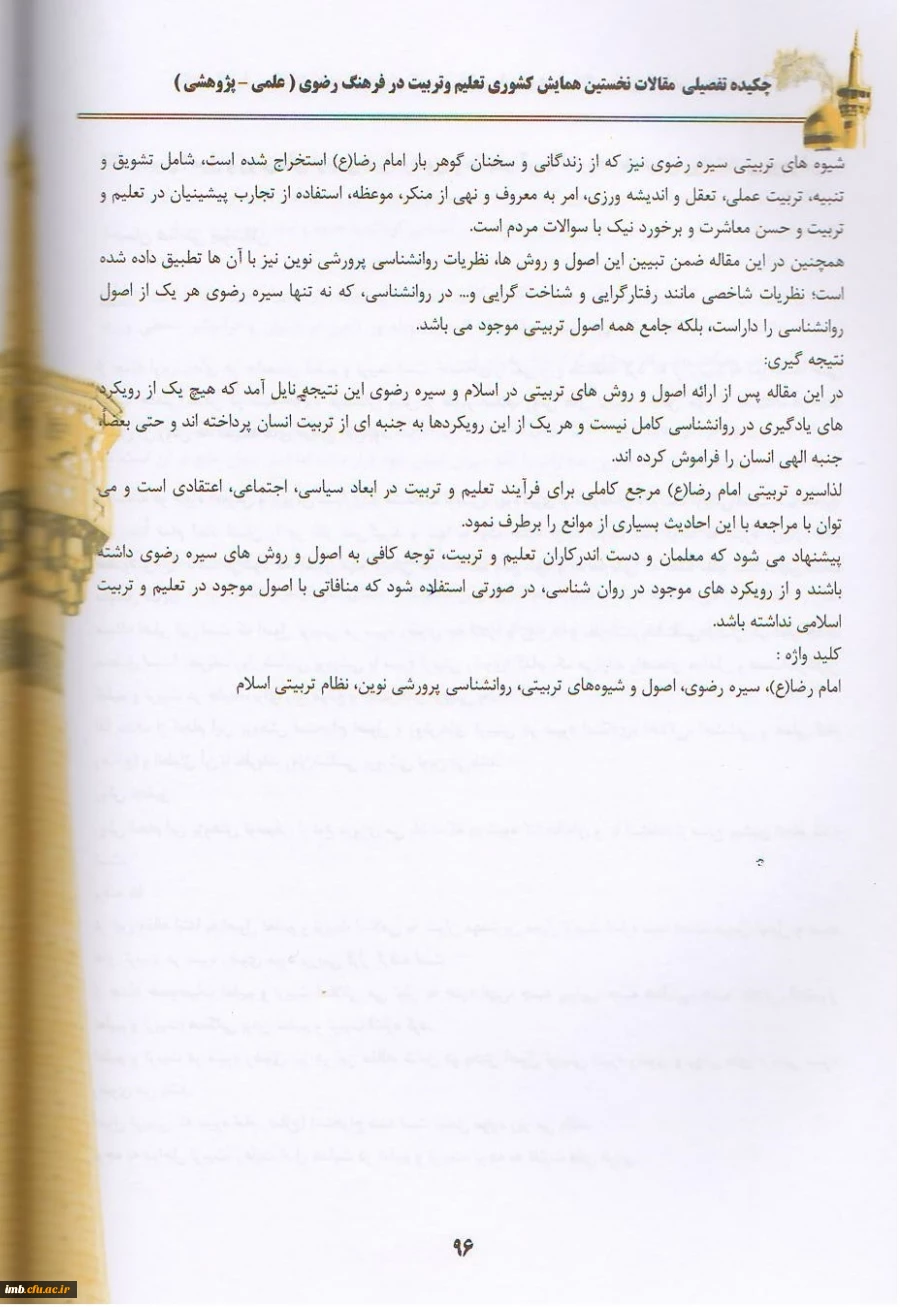 چکیده تفصیلی مقالات نخستین همایش کشوری تعلیم وتربیت در فرهنگ رضوی ( علمی – پژوهشی )
شیوه های تربیتی سیره رضوی نیز که از زندگانی و سخنان گوهر بار امام رضا(ع) استخراج شده است، شامل تشویق و
تنبیه، تربیت عملی، تعقل و اندیشه ورزی، امر به معروف و نهی از منکر، موعظه، استفاده از تجارب پیشینیان در تعلیم و
تربیت و حسن معاشرت و برخورد نیک با سوالات مردم است.
همچنین در این مقاله ضمن تبیین این اصول و روش ها، نظریات روانشناسی پرورشی نوین نیز با آن ها تطبیق داده شده
است؛ نظریات شاخصی مانند رفتارگرایی و شناخت گرایی و... در روانشناسی، که نه تنها سیره رضوی هر یک از اصول
روانشناسی را داراست، بلکه جامع همه اصول تربیتی موجود می باشد.
نتیجه گیری:
در این مقاله پس از ارائه اصول و روش های تربیتی در اسلام و سیره رضوی این نتیجه نایل آمد که هیچ یک از رویکرد
های یادگیری در روانشناسی کامل نیست و هر یک از این رویکردها به جنبه ای از تربیت انسان پرداخته اند و حتی بعضاً،
جنبه الهی انسان را فراموش کرده اند.
لذاسیره تربیتی امام رضا(ع) مرجع کاملی برای فرآیند تعلیم و تربیت در ابعاد سیاسی، اجتماعی، اعتقادی است و می
توان با مراجعه با این احادیث بسیاری از موانع را برطرف نمود.
پیشنهاد می شود که معلمان و دست اندرکاران تعلیم و تربیت، توجه کافی به اصول و روش های سیره رضوی داشته
باشند و از رویکرد های موجود در روان شناسی، در صورتی استفاده شود که منافاتی با اصول موجود در تعلیم و تربیت
اسلامی نداشته باشد.
کلید واژه :
امام رضا(ع)، سیره رضوی، اصول و شیوه‌های تربیتی، روانشناسی پرورشی نوین، نظام تربیتی اسلام
۹۶
imb.cfu.ac.ir